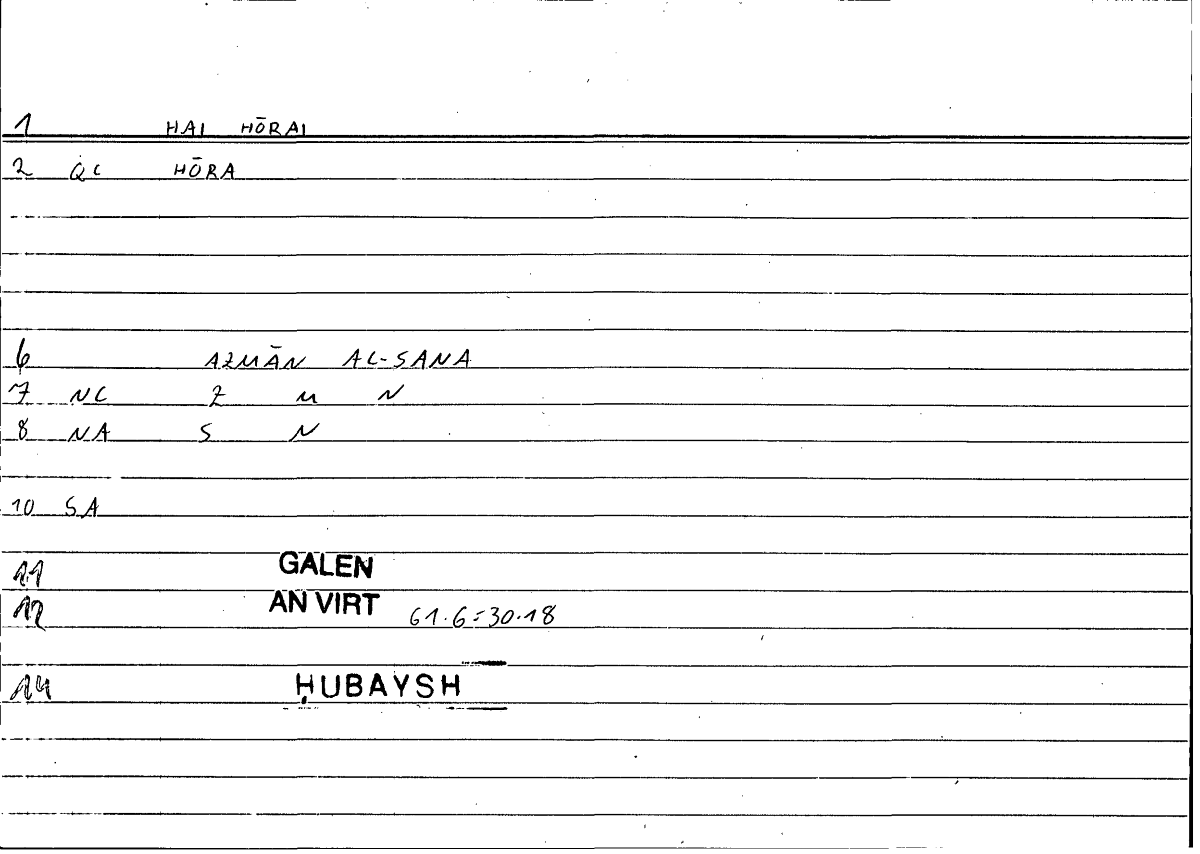 1 HAI HŌRAI
2 QC HŌRA
6 AZMĀN AL-SANA
7 NC Z M N
8 NA S N
10 SA
11 GALEN
12 AN VIRT 61.6=30.18
14 ḤUBAYSH